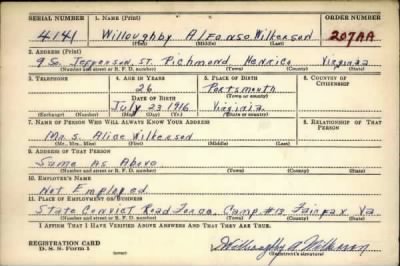 SERIAL NUMBER 1. NAME (Print) ORDER NUMBER
4141 Willoughby Alfonso Wilkerson 207AA
(First) (Middle) (Last)
2. ADDRESS (Print)
9 So. Jefferson, St. Richmond Henrico Virginia
(Number and street or R. F. D. number) (Town) (County) (State)
3. TELEPHONE 4. AGE IN YEARS 5. PLACE OF BIRTH 6. COUNTRY OF CITIZENSHIP
26 Portsmouth
DATE OF BIRTH (Town or county)
July 23 1916 Virginia
(Exchange) (Number) (Mo.) (Day) (Yr.) (State or country)
7. NAME OF PERSON WHO WILL ALWAYS KNOW YOUR ADDRESS 8. RELATIONSHIP OF THAT PERSON
Mrs. Alice Wilkerson
(Mr., Mrs., Miss) (First) (Middle) (Last)
9. ADDRESS OF THAT PERSON
Same As Above
(Number and street or R. F. D. number) (Town) (County) (State)
10. EMPLOYER'S NAME
Not Employed
11. PLACE OF EMPLOYMENT OR BUSINESS
State Convict Road Force, Camp #13 Fairfax Va
(Number and street or R. F. D. number) (Town) (County) (State)
I AFFIRM THAT I HAVE VERIFIED ABOVE ANSWERS AND THAT THEY ARE TRUE.
REGISTRATION CARD
D. S. S. Form 1 (over) Willoughby A Wilkerson
(Registrant's signature)